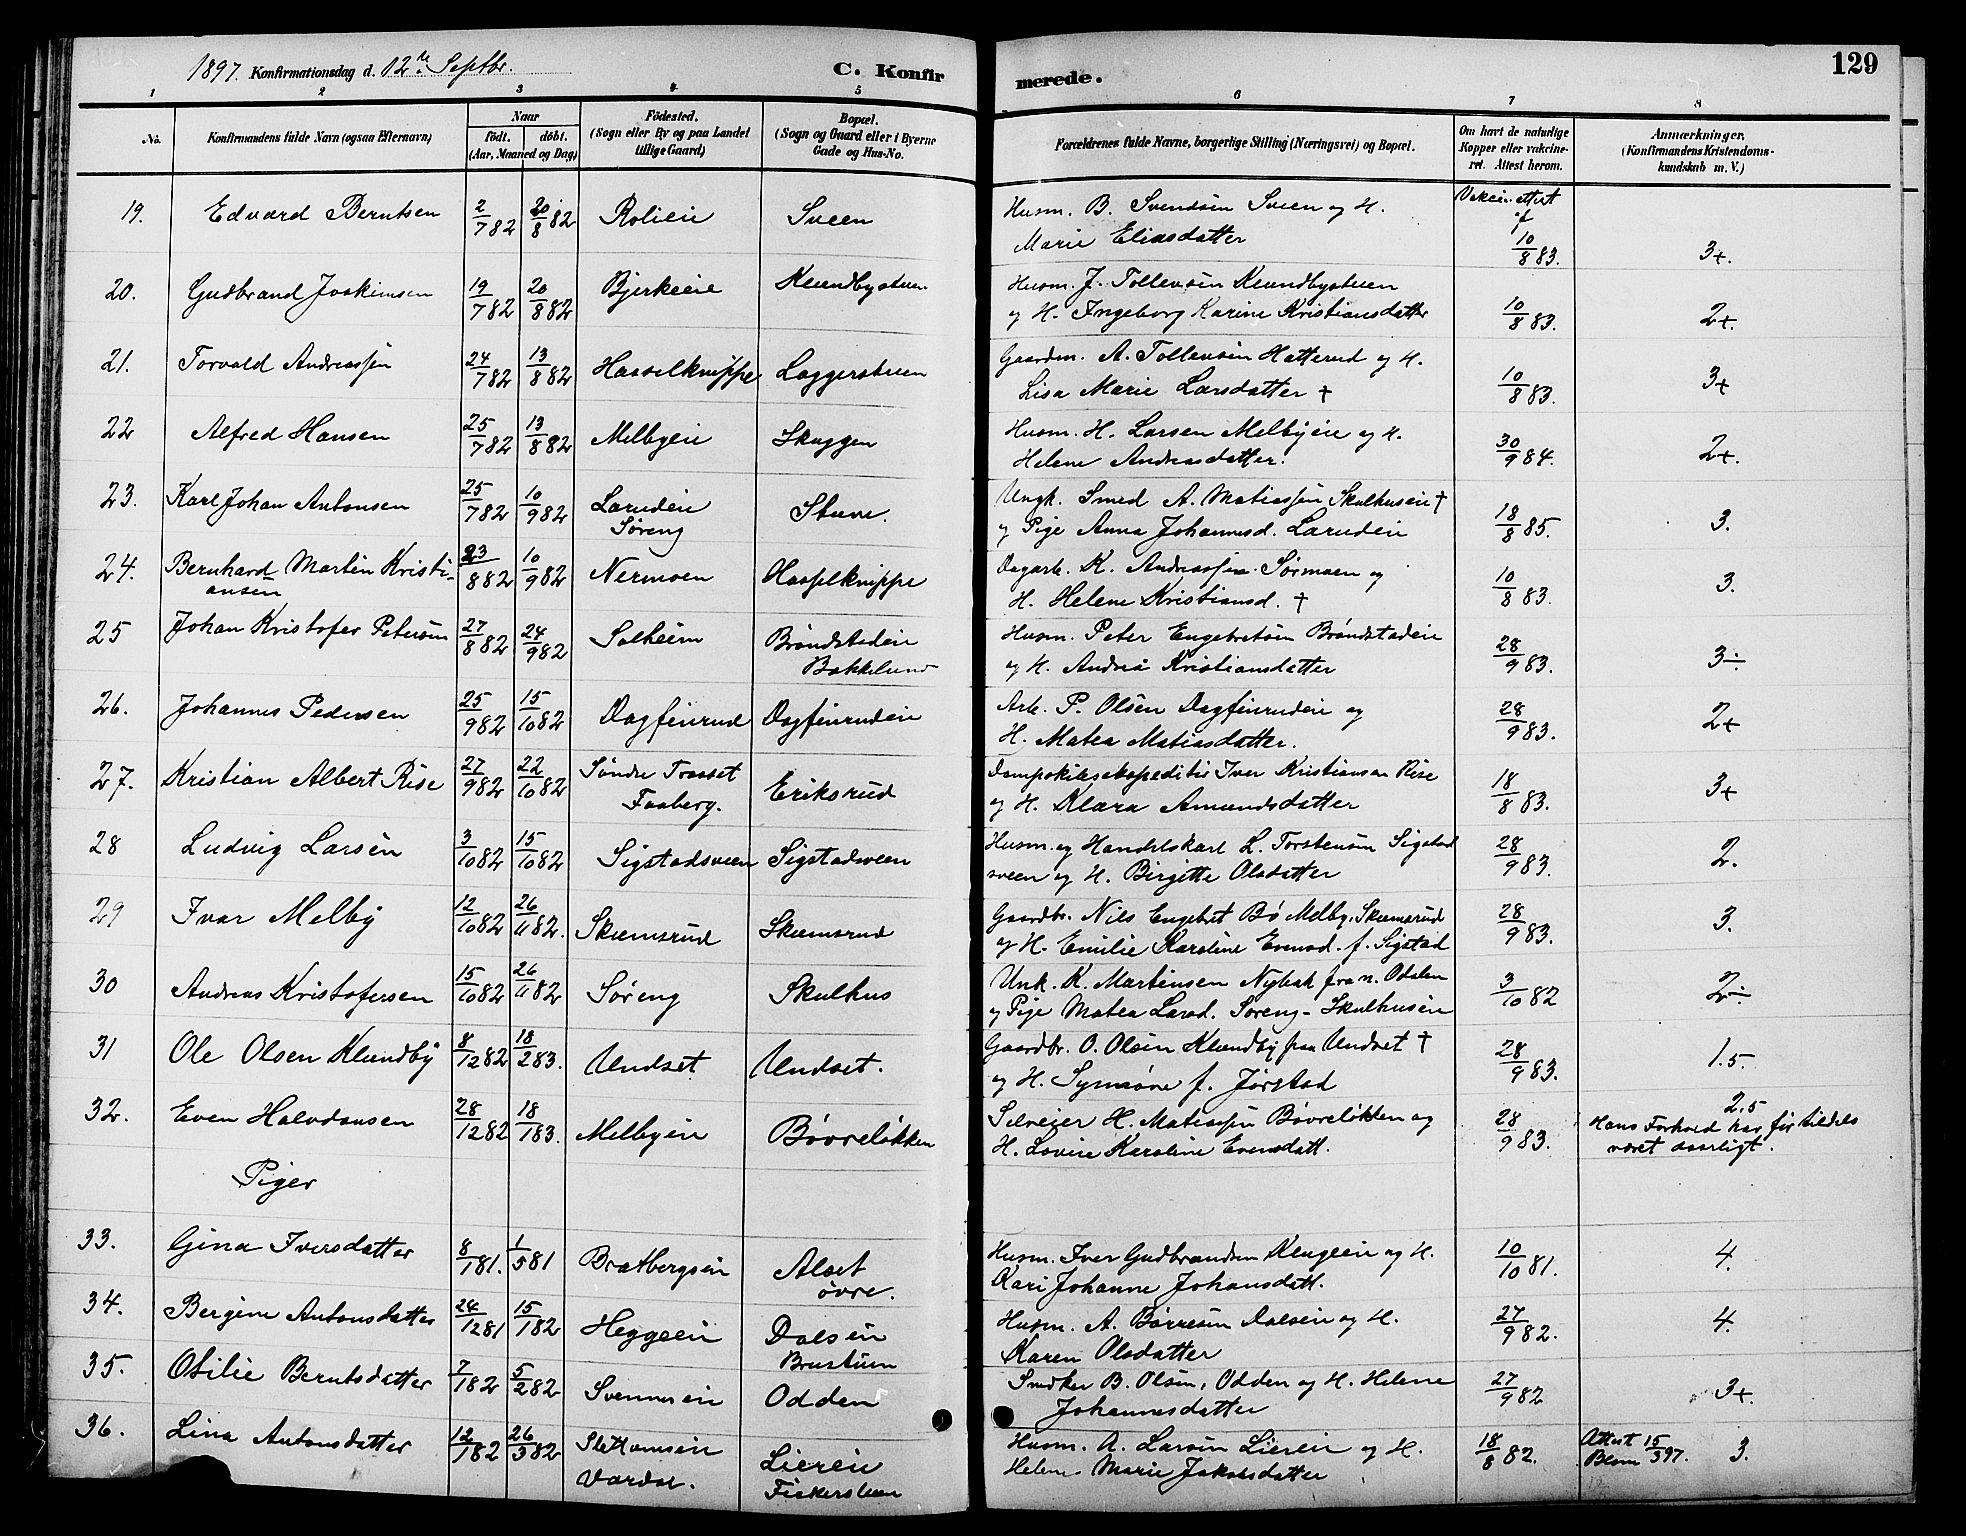 1897. Konfirmationsdag d. 12te Septbr. C. Konfirmerede. 129
1 2 3 4 5 6 7 8
No. Konfirmandens fulde Navn (ogsaa Efternavn) Naar født. døbt. (Aar, Maaned og Dag) Fødested. (Sogn eller By og paa Landet tillige Gaard) Bopæl. (Sogn og Gaard eller i Byerne Gade og Hus-No. Forældrenes fulde Navne, borgerlige Stilling (Næringsvei) og Bopæl. Om havt de naturlige Kopper eller vakcineret. Attest herom. Anmærkninger. (Konfirmandens Kristendomskundskab m. V.)
19. Edvard Berntsen 2/7 82 20/8 82 Rolieie Sveen Husm. B. Svendsen Sveen og H. Vakcin. attest af
Marie Eliasdatter 10/8 83. 3+.
20. Gudbrand Joakimsen 19/7 82 20/8 82 Bjerkeeie Klundbystuen Husm. J. Tollevsen Klundbystuen
og H. Ingeborg Karine Kristiansdatter 10/8 83. 2+.
21. Torvald Andreassen 24/7 82 13/8 82 Hasselknippe Laggerstuen Gaardm. A. Tollevsen Hatterud og H.
Lisa Marie Larsdatter † 10/8 83. 3+
22 Alfred Hansen 25/7 82 13/8 82 Melbyeie Skuggen Husm. H. Larsen Melbyeie og H.
Helene Andreasdatter. 30/9 84. 2+.
23. Karl Johan Antonsen 25/7 82 10/9 82 Larudeie Stuve. Ungk. Smed A. Matiassen Skulhuseie †
Søreng og Pige Anna Johannesd. Larudeie 18/8 85. 3.
24. Bernhard Martin Kristiansen 23/8 82 10/9 82 Nermoen Hasselknippe Dagarb. K. Andreassen Sørmoen og
H. Helene Kristiansd. † 10/8 83. 3.
25 Johan Kristofer Petersen 27/8 82 24/9 82 Solheim Brøndstadeie Husm. Peter Engebretsen Brøndstadeie
Bakkelund og H. Andrea Kristiansdatter 28/9 83. 3÷
26. Johannes Pedersen 25/9 82 15/10 82 Dagfinrud Dagfinrudeie Arb. P. Olsen Dagfinrudeie og
H. Matea Matiasdatter. 28/9 83. 2+
27. Kristian Albert Rise 27/9 82 22/10 82 Søndre Trosset Eriksrud Dampskibsekspeditør Iver Kristiansen Rise
Faaberg. og H. Klara Amundsdatter 18/8 83. 3+
28 Ludvig Larsen 3/10 82 15/10 82 Sigstadsveen Sigstadsveen Husm. og Handelskarl L. Torstensen Sigstad
sveen og H. Birgitte Olsdatter 28/9 83. 2.
29 Ivar Melby 12/10 82 26/11 82. Skumsrud Skumsrud Gaardbr. Nils Engebret Bø Melby, Skumsrud
og H. Emilie Karoline Evensd. f. Sigstad 28/9 83. 3.
30 Andreas Kristofersen 15/10 82 26/11 82 Søreng Skulhus Unk. K. Martinsen Nybak fra n. Odalen
og Pige Matea Larsd. Søreng-Skulhuseie 3/10 82 2÷
31 Ole Olsen Klundby 8/12 82 18/2 83. Undset Undset. Gaardbr. O. Olsen Klundby fra Undset †
og H. Synnøve f. Jørstad 28/9 83. 1.5
32. Even Halvdansen 28/12 82 18/1 83. Melbyeie Bøvreløkken Selveier H. Matiassen Bøvreløkken og
H. Lovise Karoline Evensdatt. 28/9 83. 2,5 Hans Forhold har før tildels
været daarligt.
Piger
33. Gina Iversdatter 8/1 81. 1/5 81 Bratbergseie Alset Husm. Iver Gudbrandsen Klugeeie og H.
øvre. Kari Johanne Johansdatt. 10/10 81. 4.
34. Bergine Antonsdatter 24/12 81 15/1 82 Heggeeie Dalseie Husm. A. Børresen Dalseie og H.
Brustuen Karen Olsdatter 27/9 82. 4.
35. Otilie Berntsdatter 7/1 82 5/2 82 Svenneseie Odden Snedker B. Olsen, Odden og H. Helene
Johannesdatter 27/9 82 3+
36. Lina Antonsdatter 12/1 82 26/3 82 Slettumseie Liereie Husm. A. Larsen Liereie og H.
Vardal. Fiskerstuen Helene Marie Jakobsdatter 18/8 82. Attest 15/3 97. 3.